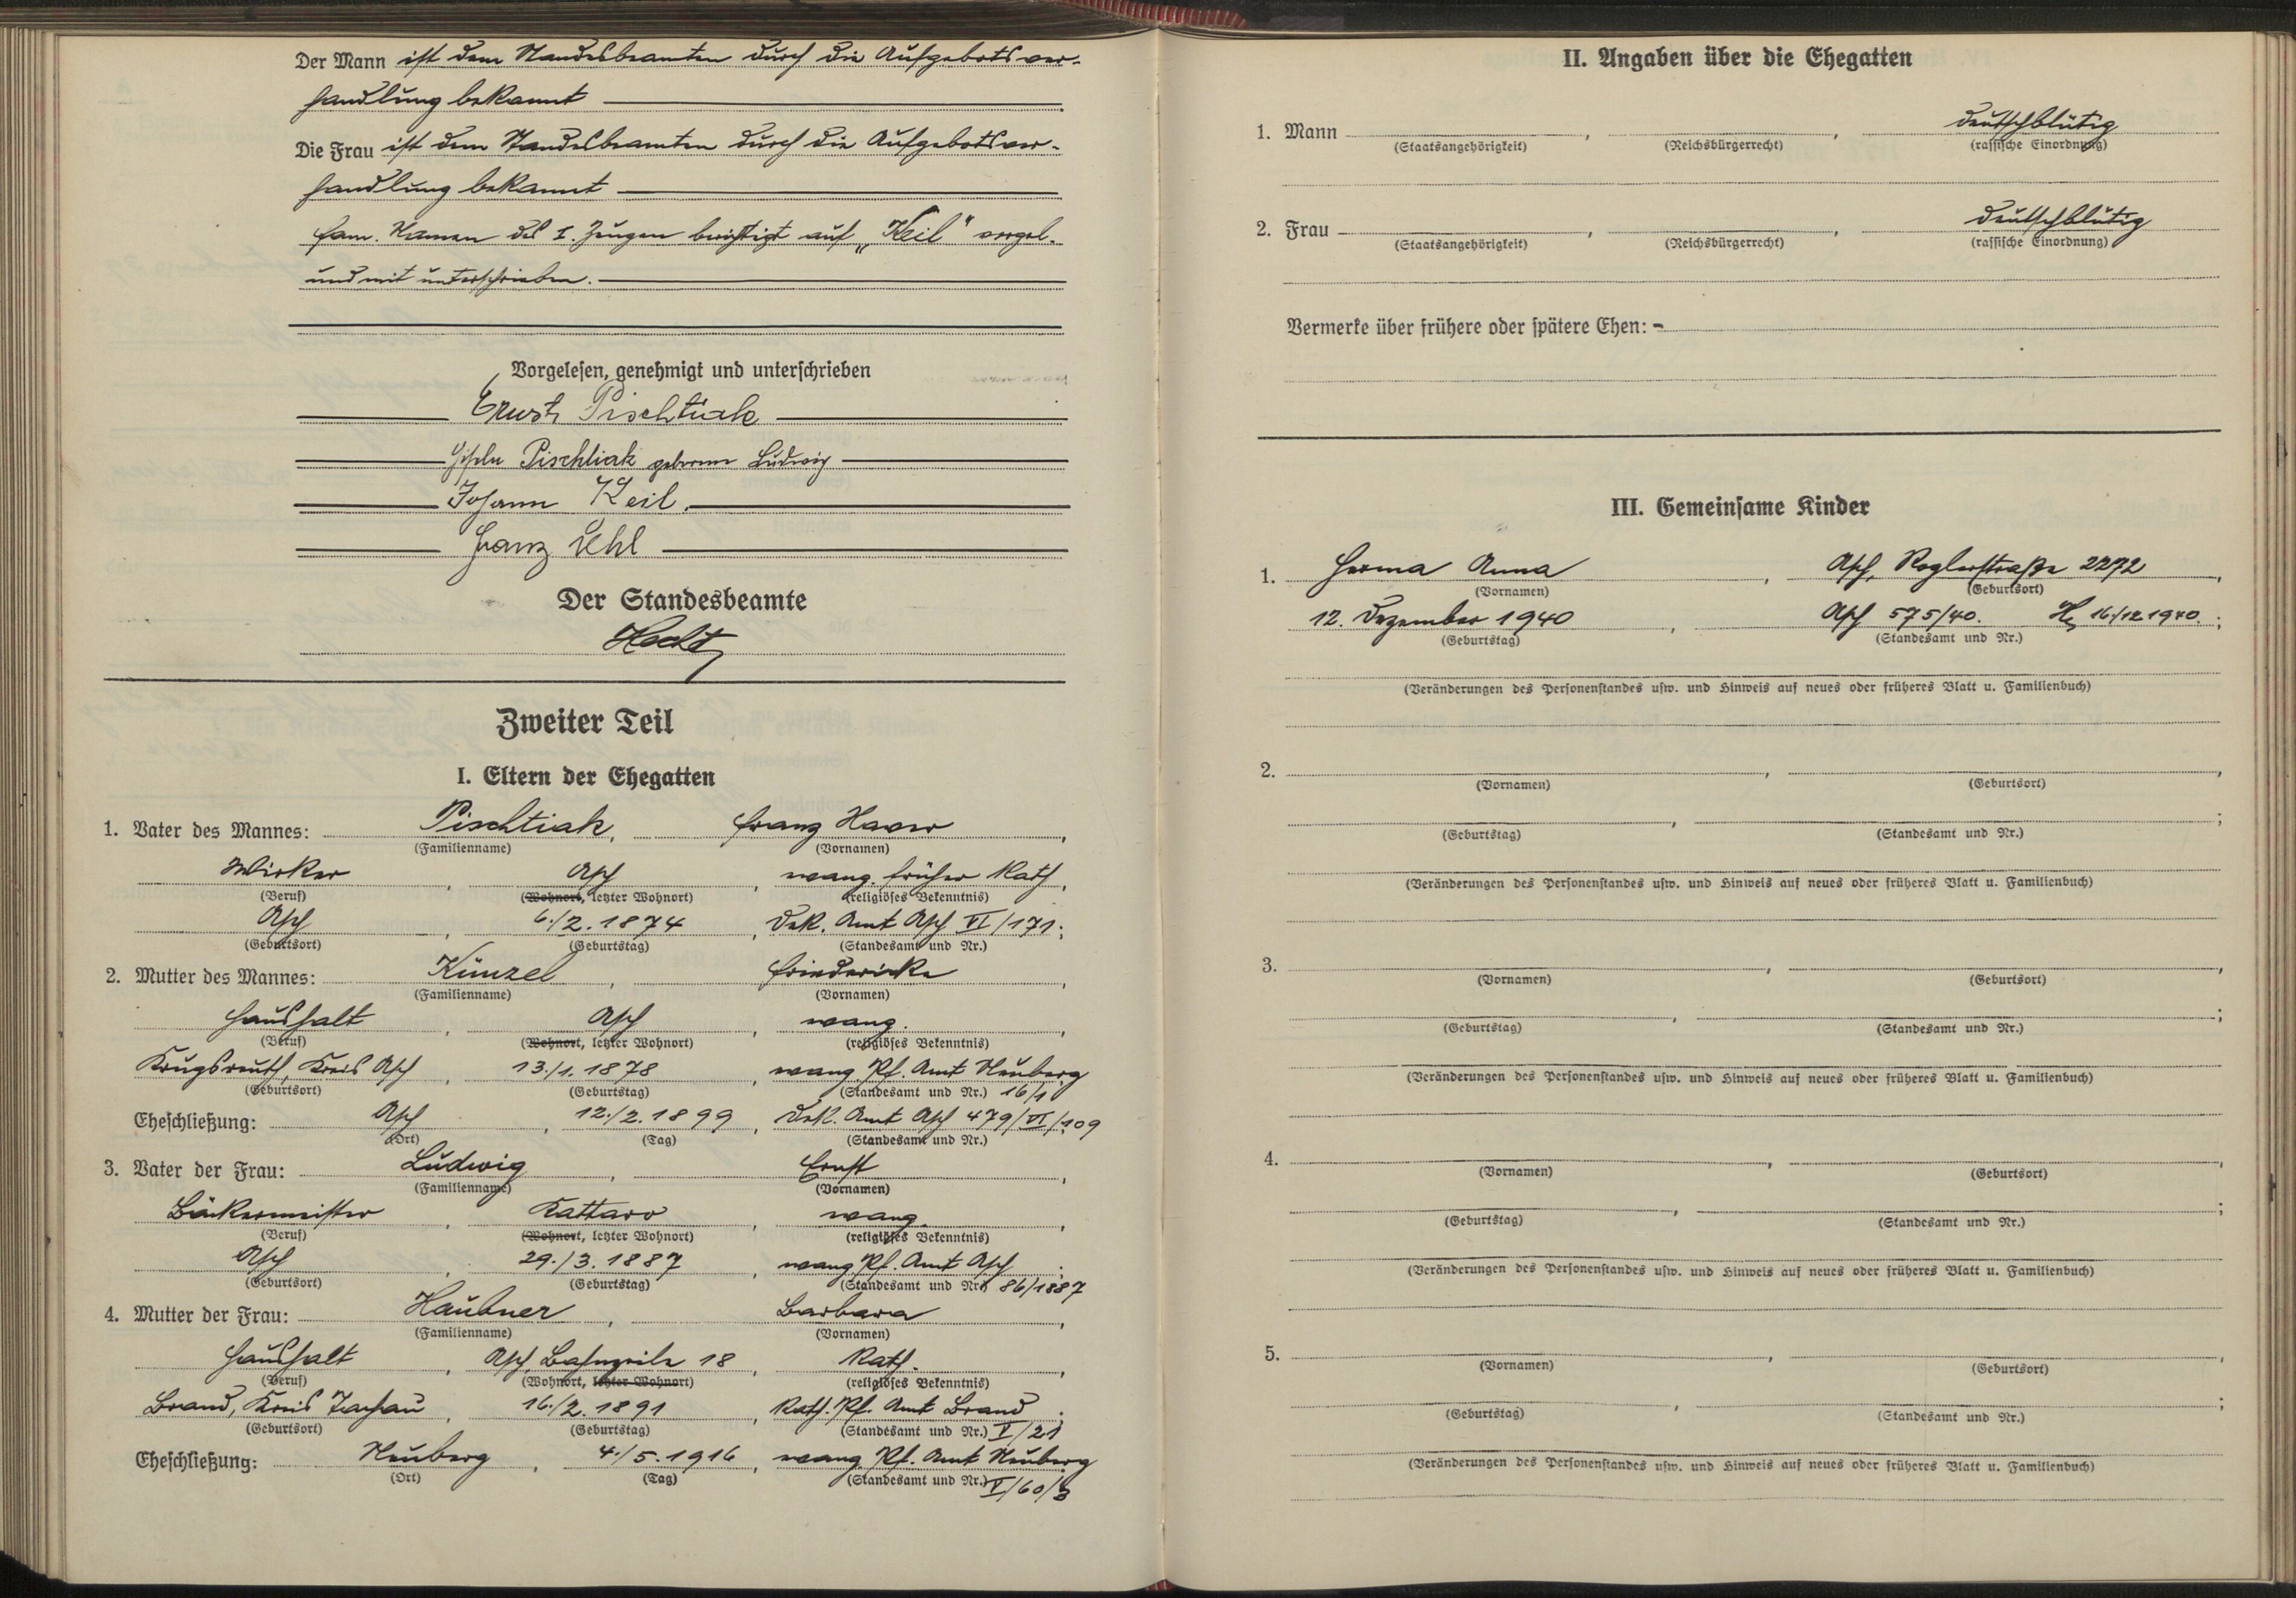 Der Mann ist dem Standesbeamten durch die Aufgebotsver-
handlung bekannt
Die Frau ist dem Standesbeamten durch die Aufgebotsver-
handlung bekannt
Fam. Namen des I. Zeugen berichtigt auf „Keil" vorgel.
und mit unterschrieben.
Vorgelesen, genehmigt und unterschrieben
Ernst Pischtiak
Pischtiak geborene Ludwig
Johann Keil.
Franz Uhl
Der Standesbeamte
Hecht
Zweiter Teil
I. Eltern der Ehegatten
1. Vater des Mannes: Pischtiak, Franz Xaver,
(Familienname) (Vornamen)
Wirker, Asch, evang. früher kath,
(Beruf) (Wohnort, letzter Wohnort) (religiöses Bekenntnis)
Asch, 6./2. 1874, Dek. Amt Asch VI/171;
(Geburtsort) (Geburtstag) (Standesamt und Nr.)
2. Mutter des Mannes: Künzel, Friedericke,
(Familienname) (Vornamen)
Haushalt, Asch, evang.,
(Beruf) (Wohnort, letzter Wohnort) (religiöses Bekenntnis)
Krugsreuth, Kreis Asch, 13./1. 1878, evang Pf. Amt Neuberg
(Geburtsort) (Geburtstag) (Standesamt und Nr.) 16/1
Eheschließung: Asch, 12./2. 1899, Dek. Amt Asch 479/VI/109
(Ort) (Tag) (Standesamt und Nr.)
3. Vater der Frau: Ludwig, Ernst,
(Familienname) (Vornamen)
Bäckermeister, Cattaro, evang.,
(Beruf) (Wohnort, letzter Wohnort) (religiöses Bekenntnis)
Asch, 29./3. 1887, evang Pf. Amt Asch;
(Geburtsort) (Geburtstag) (Standesamt und Nr.) 86/1887
4. Mutter der Frau: Haubner, Barbara,
(Familienname) (Vornamen)
Haushalt, Asch, Bahnzeile 18, kath.,
(Beruf) (Wohnort, letzter Wohnort) (religiöses Bekenntnis)
Brand, Kreis Tachau, 16./2. 1891, kath. Pf. Amt Brand;
(Geburtsort) (Geburtstag) (Standesamt und Nr.) V/21
Eheschließung: Neuberg, 4./5. 1916, evang Pf. Amt Neuberg
(Ort) (Tag) (Standesamt und Nr.) V/60/3
II. Angaben über die Ehegatten
1. Mann , , deutschblütig
(Staatsangehörigkeit) (Reichsbürgerrecht) (rassische Einordnung)
2. Frau , , deutschblütig
(Staatsangehörigkeit) (Reichsbürgerrecht) (rassische Einordnung)
Vermerke über frühere oder spätere Ehen: -
III. Gemeinsame Kinder
1. Herma Anna, Asch, Roglerstraße 2272,
(Vornamen) (Geburtsort)
12. Dezember 1940, Asch 575/40. 16./12 1940.;
(Geburtstag) (Standesamt und Nr.)
(Veränderungen des Personenstandes usw. und Hinweis auf neues oder früheres Blatt u. Familienbuch)
2. , ,
(Vornamen) (Geburtsort)
, ;
(Geburtstag) (Standesamt und Nr.)
(Veränderungen des Personenstandes usw. und Hinweis auf neues oder früheres Blatt u. Familienbuch)
3. , ,
(Vornamen) (Geburtsort)
, ;
(Geburtstag) (Standesamt und Nr.)
(Veränderungen des Personenstandes usw. und Hinweis auf neues oder früheres Blatt u. Familienbuch)
4. , ,
(Vornamen) (Geburtsort)
, ;
(Geburtstag) (Standesamt und Nr.)
(Veränderungen des Personenstandes usw. und Hinweis auf neues oder früheres Blatt u. Familienbuch)
5. , ,
(Vornamen) (Geburtsort)
, ;
(Geburtstag) (Standesamt und Nr.)
(Veränderungen des Personenstandes usw. und Hinweis auf neues oder früheres Blatt u. Familienbuch)